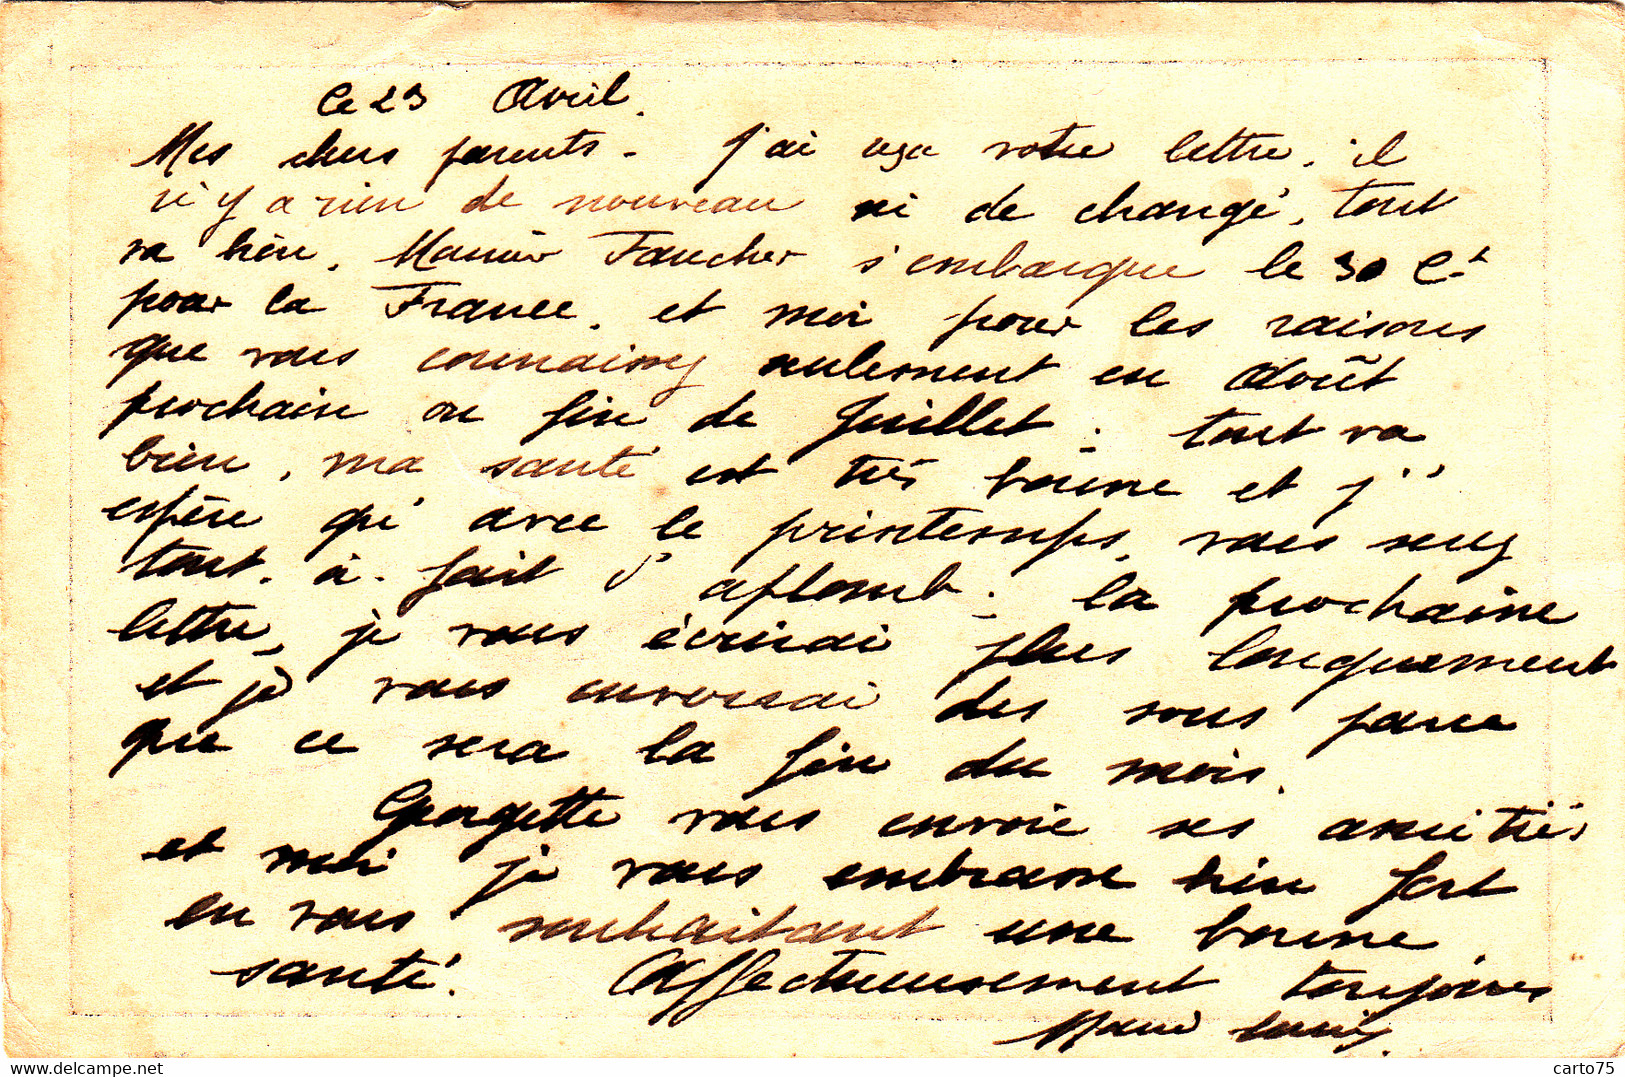 Le 23 Avril.
Mes chers parents - J'ai reçu votre lettre, il
n'y a rien de nouveau ni de changé, tout
va bien. Faucher s'embarque le 30 Ct
pour la France. et moi pour les raisons
que vous connaissez seulement en Août
prochain ou fin de Juillet ; tout va
bien, ma santé est très bonne et j'
espère qu'avec le printemps, vous serez
tout. à. fait d'aplomb ; la prochaine
lettre, je vous écrirai plus longuement
et je vous enverrai des sous parce
que ce sera la fin du mois.
Georgette vous envoie ses amitiés
et moi je vous embrasse bien fort
en vous souhaitant une bonne
santé. Affectueusement toujours
www.delcampe.net
carto75